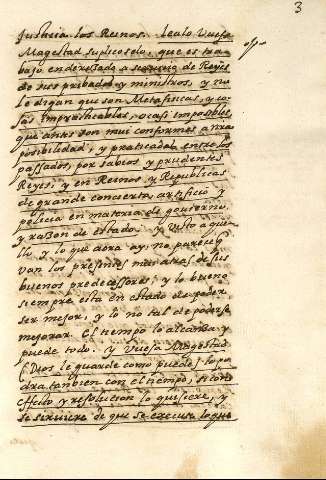 3
Justicia los Reinos. lealo Vuesa
Magestad suplicoselo, que es tra
bajo enderessado a seruicio de Reyes
de sus pribados y ministros, y no
le digan que son Metafisicas, y co
sas impracticables, o casi imposibles
que antes son mui conformes a nra
posibilidad, y praticadas entre los
passados, por sabios y prudentes
Reyes, y en Reinos y Republicas
de grande concierto, artificio y
policia en materia de gouierno,
y rason de estado. y visto aque
llo, y lo que aora ay, no parece q
van los presentes mas atras de sus
buenos predecessores; y lo bueno
siempre esta en estado de poder
ser mejor, y lo no tal de poderse
mejorar. El tiempo lo alcansa y
puede todo. y Vuesa Magestad
(Dios le guarde como puede) lo po
dra tanbien con el tiempo, si con
effecto y resolucion lo quisiere, y
se siruiere de que se execute lo que